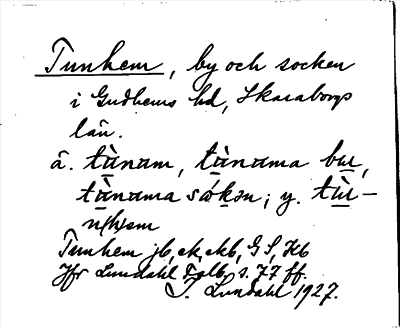 Tunhem, by och socken
i Gudhems hd, Skaraborgs
län.
ä. tànam, tànama bu,
tànama sókən; y. tù-
n(h)em
Tunhem jb, ek, ekb, GS, Kb
Jfr Lundahl Falb. s. 77 ff.
I. Lundahl 1927.